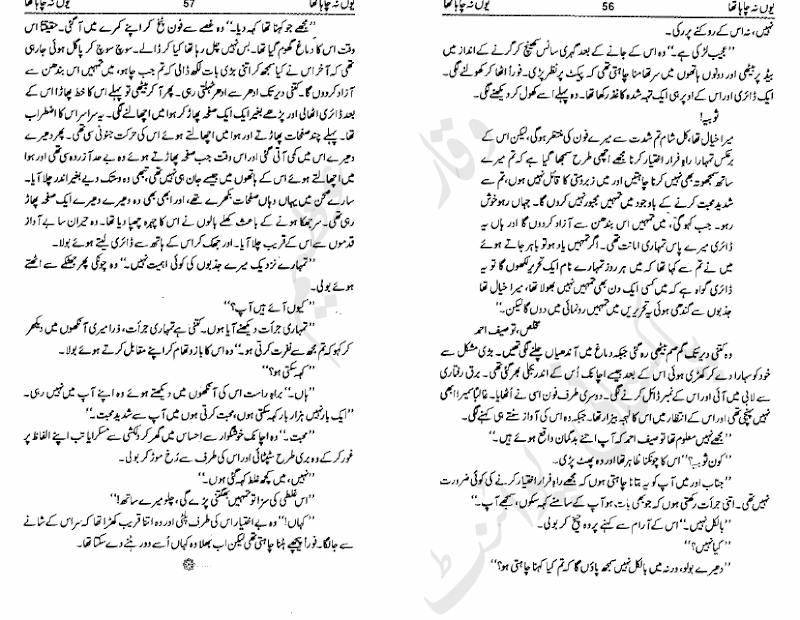 یوں نہ چاہا تھا 56 یوں نہ چاہا تھا
نہیں، نہ اس کے روکنے پر رکی۔
”عجیب لڑکی ہے۔“ وہ اس کے جانے کے بعد گہری سانس کھینچ کر گرنے کے انداز میں
بیڈ پر بیٹھی اور دونوں ہاتھوں میں سر تھامنا چاہتی تھی کہ پیکٹ پر نظر پڑی۔ فوراً اٹھا کر کھولنے لگی۔
ایک ڈائری اور اس کے اوپر ہی ایک تہہ شدہ کاغذ رکھا تھا۔ وہ پہلے اسے کھول کر دیکھنے لگی۔
ثوبیہ!
میرا خیال تھا، کل شام تم شدت سے میرے فون کی منتظر ہو گی، لیکن اس کے
برعکس تمہارا راہِ فرار اختیار کرنا مجھے اچھی طرح سمجھا گیا ہے کہ تم میرے
ساتھ سمجھوتہ بھی نہیں کرنا چاہتیں اور میں زبردستی کا قائل نہیں ہوں، تم سے
شدید محبت کرنے کے باوجود میں تمہیں مجبور نہیں کروں گا۔ جہاں رہو خوش
رہو۔ جب کہو گی، میں تمہیں اس بندھن سے آزاد کر دوں گا اور ہاں یہ
ڈائری میرے پاس تمہاری امانت تھی۔ اگر تمہیں یاد ہو تو باہر جاتے ہوئے
میں نے تم سے کہا تھا کہ میں ہر روز تمہارے نام ایک تحریر لکھوں گا تو یہ
ڈائری گواہ ہے کہ میں کسی ایک دن بھی تمہیں نہیں بھولا تھا، میرا خیال تھا
جذبوں سے گندھی ہوئی یہ تحریریں میں تمہیں رونمائی میں دوں گا لیکن۔“
مخلص، توصیف احمد
وہ کتنی دیر تک گم صم بیٹھی رہ گئی جبکہ دماغ میں آندھیاں چلنے لگی تھیں۔ بڑی مشکل سے
خود کو سہارا دے کر کھڑی ہوئی اس کے بعد جیسے اچانک اُس کے اندر بجلی بھر گئی تھی۔ برق رفتاری
سے لابی میں آئی اور اس کے نمبر ڈائل کرنے لگی۔ دوسری طرف فون اسی نے اُٹھایا۔ غالباً سمیرا ابھی
نہیں پہنچی تھی اور اس کے انتظار میں اس کا لہجہ بیزار تھا۔ جبکہ وہ اس کی آواز سنتے ہی کہنے لگی۔
”مجھے نہیں معلوم تھا توصیف احمد کہ آپ اتنے بدگمان واقع ہوئے ہیں۔“
”کون ثوبیہ؟“ اس کا چونکنا ظاہر تھا اور وہ پھٹ پڑی۔
”جناب اور میں آپ کو یہ بتانا چاہتی ہوں کہ مجھے راہِ فرار اختیار کرنے کی کوئی ضرورت
نہیں تھی۔ اتنی جرأت رکھتی ہوں کہ جو بھی بات ہو آپ کے سامنے کہہ سکوں، سمجھے آپ۔“
”بالکل نہیں۔“ اس کے آرام سے کہنے پر وہ چیخ کر بولی۔
”کیا نہیں؟“
”دھیرے بولو، ورنہ میں بالکل نہیں سمجھ پاؤں گا کہ تم کیا کہنا چاہتی ہو؟“
یوں نہ چاہا تھا 57 یوں نہ چاہا تھا
”مجھے جو کہنا تھا کہہ دیا۔“ وہ غصے سے فون پٹخ کر اپنے کمرے میں آ گئی۔ حقیقتاً اس
وقت اس کا دماغ گھوم گیا تھا۔ بس نہیں چل رہا تھا کیا کر ڈالے۔ سوچ سوچ کر پاگل ہوئی جا رہی
تھی کہ آخر اس نے کیا سمجھ کر اتنی بڑی بات لکھ ڈالی کہ تم جب چاہو، میں تمہیں اس بندھن سے
آزاد کر دوں گا۔ کتنی دیر تک ادھر سے ادھر ٹہلتی رہی۔ پھر آ کر بیٹھی تو پہلے اس کا خط پھاڑا اس کے
بعد ڈائری اٹھالی اور پڑھے بغیر ایک ایک صفحہ پھاڑ کر ہوا میں اچھالنے لگی۔ یہ سراسر اس کا اضطراب
تھا۔ پہلے چند صفحات پھاڑتے اور ہوا میں اچھالتے ہوئے اس کی حرکت جنونی سی تھی۔ پھر دھیرے
دھیرے اس میں کمی آتی گئی اور اس وقت جب صفحہ پھاڑتے ہوئے وہ بے حد آزردہ سی تھی اور ہوا
میں اچھالتے ہوئے اس کے ہاتھوں میں جیسے جان ہی نہیں تھی، تبھی وہ دستک دیے بغیر اندر چلا آیا۔
سارے صحن میں یہاں وہاں صفحات بکھرے تھے، اور ابھی بھی وہ دھیرے دھیرے ایک صفحہ پھاڑ
رہی تھی۔ سر جھکا ہونے کے باعث کھلے بالوں نے اس کا چہرہ چھپا دیا تھا۔ وہ حیران سا بے آواز
قدموں سے اس کے قریب چلا آیا۔ اور جھک کر اس کے ہاتھ سے ڈائری لیتے ہوئے بولا۔
”تمہارے نزدیک میرے جذبوں کی کوئی اہمیت نہیں۔“ وہ چونکی پھر جھٹکے سے اٹھتے
ہوئے بولی۔
”کیوں آئے ہیں آپ؟“
”تمہاری جرأت دیکھنے آیا ہوں۔ کتنی ہے تمہاری جرأت، ذرا میری آنکھوں میں دیکھ کر
کہو کہ تم مجھ سے نفرت کرتی ہو۔“ وہ اس کا بازو تھام کر اپنے مقابل کرتے ہوئے بولا۔
”کہہ سکتی ہو؟“
”ہاں۔“ براہِ راست اس کی آنکھوں میں دیکھتے ہوئے وہ اپنے آپ میں نہیں رہی۔
”ایک بار نہیں ہزار بار کہہ سکتی ہوں، محبت کرتی ہوں میں آپ سے شدید محبت۔“
”محبت۔“ وہ اچانک خوشگوار سے احساس میں گھر کر دلکشی سے مسکرایا تب اپنے الفاظ پر
غور کر کے وہ بری طرح سٹپٹائی اور اس کی طرف سے رُخ موڑ کر بولی۔
”نہیں، میں کچھ غلط کہہ گئی ہوں۔“
”اس غلطی کی سزا تو تمہیں بھگتنی پڑے گی، چلو میرے ساتھ!“
”کہاں!“ وہ بے اختیار اس کی طرف پلٹی اور وہ اتنا قریب کھڑا تھا کہ سر اس کے شانے
سے جا لگا۔ فوراً پیچھے ہٹنا چاہتی تھی لیکن اب بھلا وہ کہاں اُسے دور ہٹنے دے سکتا تھا۔